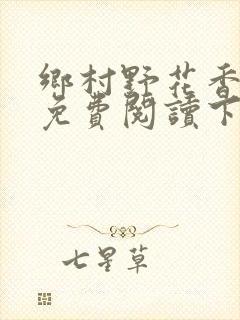 鄉村野花香
免費閱讀下
七星草